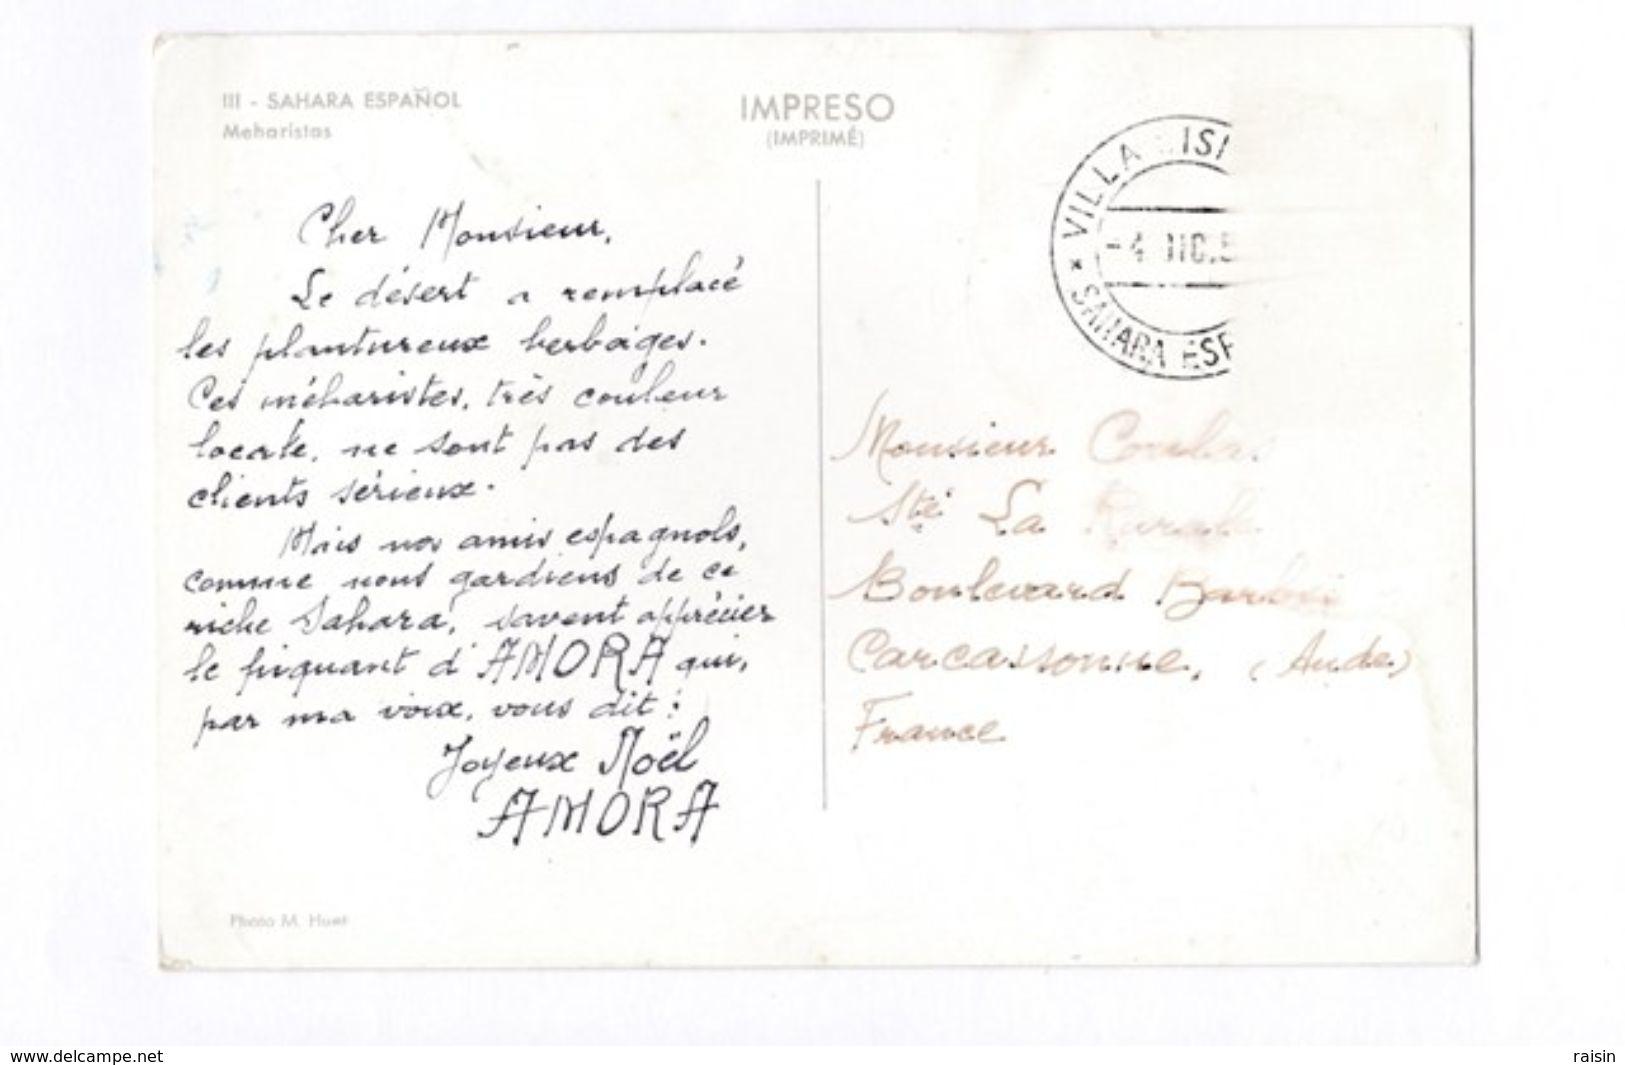 III - SAHARA ESPAÑOL
Meharistas
IMPRESO
(IMPRIMÉ)
VILLA CISN
-4 DIC.5
* SAHARA ESP
Cher Monsieur,
Le désert a remplacé
les plantureux herbages.
Ces méharistes, très couleur
locale, ne sont pas des
clients sérieux.
Mais nos amis espagnols,
comme nous gardiens de ce
riche Sahara, savent apprécier
le piquant d'AMORA qui,
par ma voix, vous dit :
Joyeux Noël
AMORA
Monsieur
Sté La Rurale
Boulevard
Carcassonne, (Aude)
France
Photo M. Huet
www.delcampe.net
raisin